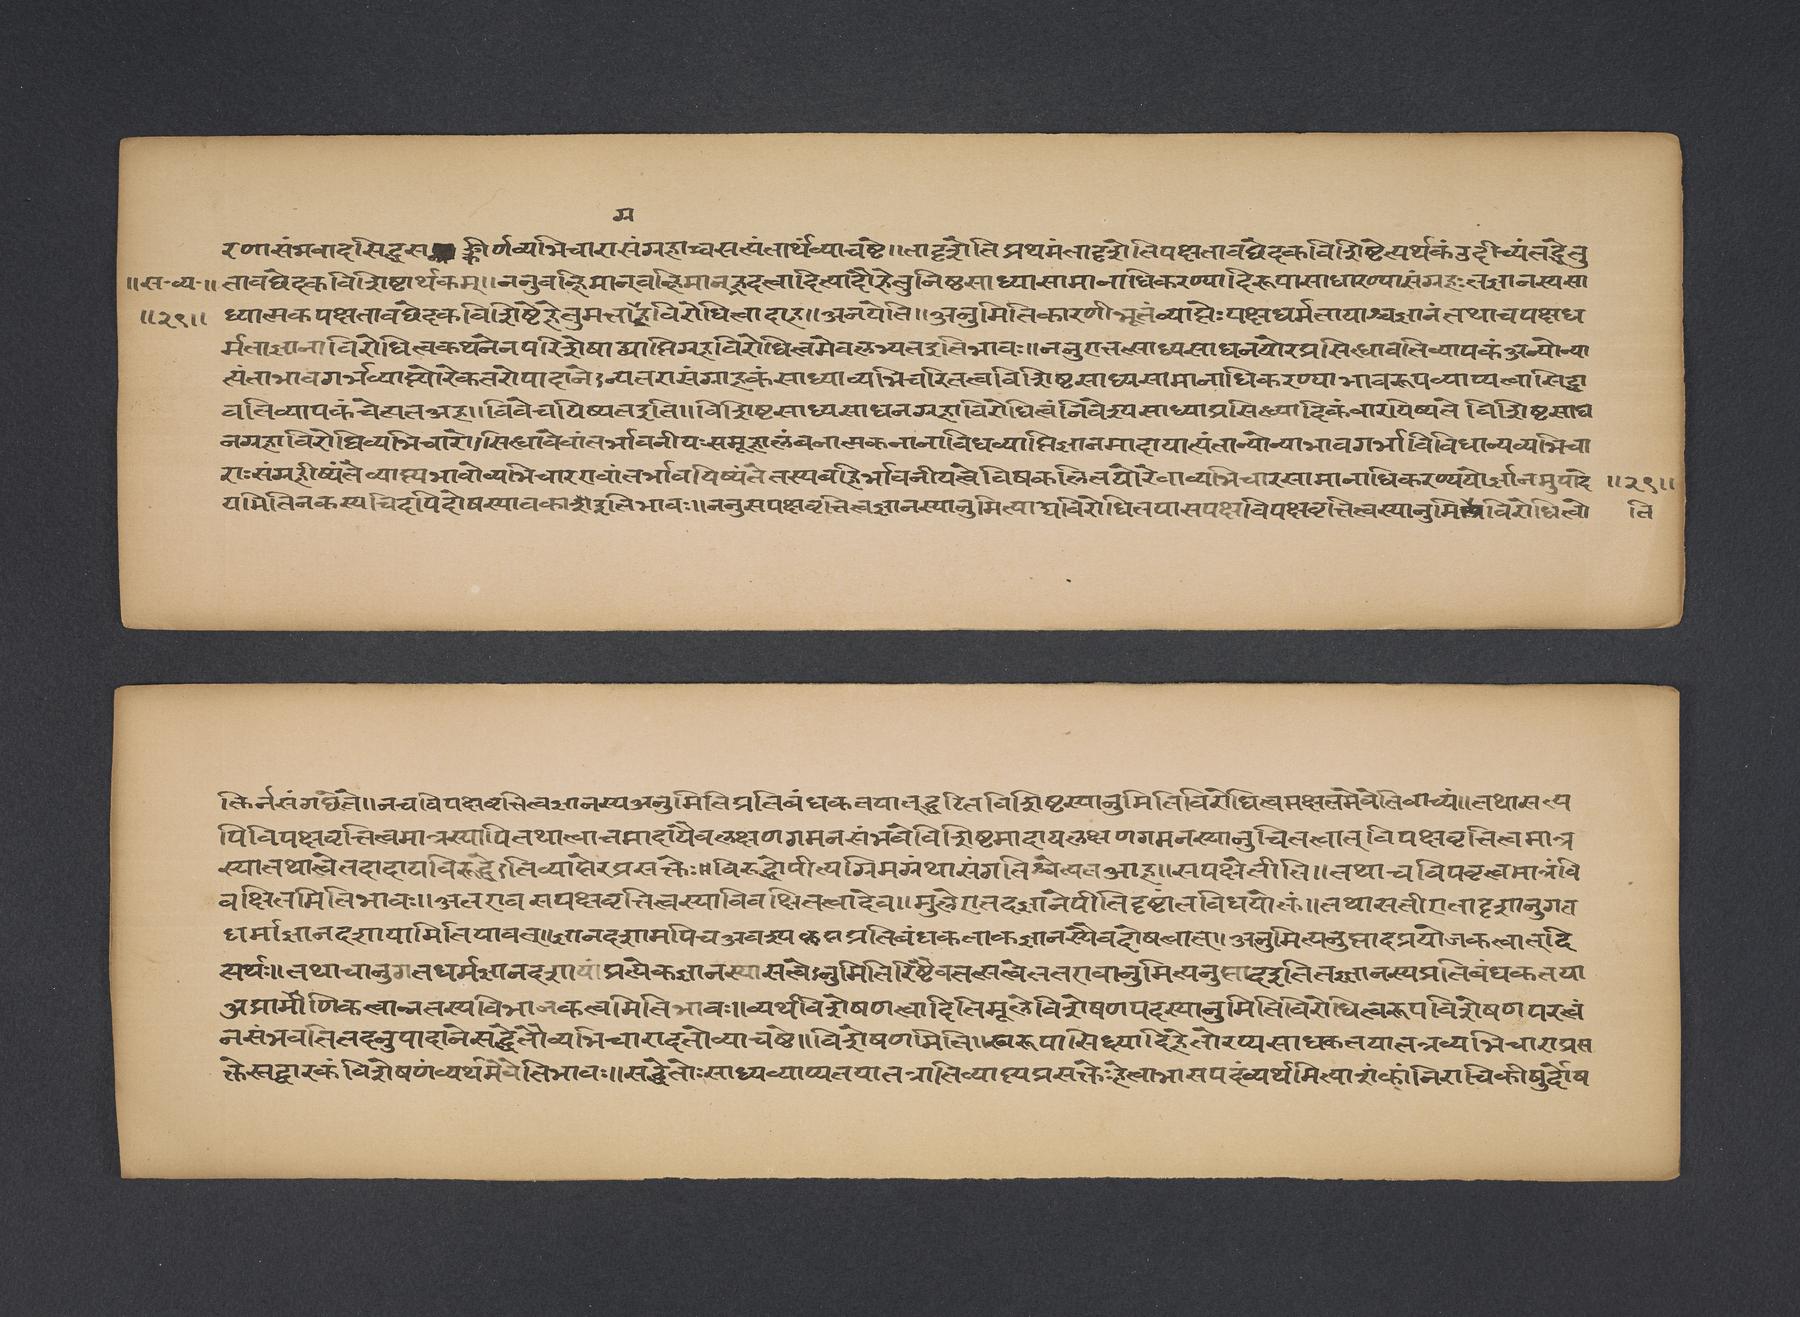 म
रणासंभवादसिद्धसङ्कीर्णव्यभिचारासंग्रहाच्चसत्यंतार्थंव्याचष्टे॥तादृशेति प्रथमंतादृशेतिपक्षतावछेदकविशिष्टेत्यर्थकं उदीच्यंतद्धेतु
॥स॰व्य॰॥ तावछेदकविशिष्टार्थकम्॥ननुवह्निमानवह्निमान्ह्रदत्वादित्यादौहेतुनिष्ठसाध्यासामानाधिकरण्यादिरूपासाधारण्यासंग्रहःतज्ज्ञानस्यसा
॥२९॥ ध्यात्मकपक्षतावछेदकविशिष्टेहेतुमत्ताग्रहेविरोधित्वादाह॥अनयेति॥अनुमितिकारणीभूतंव्याप्तेःपक्षधर्मतायाश्चज्ञानंतथाचपक्षध
र्मताज्ञानाविरोधित्वकथनेनपरिशेषाद्व्याप्तिग्रहविरोधित्वमेवलभ्यतइतिभावः॥ननुएतत्साध्यसाधनयोरप्रसिद्धावतिव्यापकं अन्योन्या
त्यंताभावगर्भव्याप्त्योरेकतरोपादानेऽन्यतरासंग्राहकंसाध्याव्यभिचरितत्वविशिष्टसाध्यसामानाधिकरण्याभावरूपव्याप्यत्वासिद्धा
वतिव्यापकंचेत्यतआह॥विवेचयिष्यतइति॥विशिष्टसाध्यसाधनग्रहाविरोधित्वंनिवेश्यसाध्याप्रसिद्ध्यादिकंवारयिष्यते विशिष्टसाध
नग्रहाविरोधिव्यभिचारोऽसिद्धावेवांतर्भावनीयःसमूहालंबनात्मकनानाविधव्याप्तिज्ञानमादायात्यंतान्योन्याभावगर्भाविविधान्यव्यभिचा
राःसंग्रहीष्यंते व्याप्त्यभावोव्यभिचारएवांतर्भावयिष्यंते तस्यबहिर्भावनीयत्वेविषकलितयोरेवाव्यभिचारसामानाधिकरण्ययोर्ज्ञानमुपादे ॥२९॥
यमितिनकस्यचिदपिदोषस्यावकाशइतिभावः॥ननुसपक्षवृत्तित्वज्ञानस्यानुमित्याद्यविरोधितयासपक्षविपक्षवृत्तित्वस्यानुमितिविरोधित्वो ति
क्तिर्नसंगछते॥नचविपक्षवृत्तित्वज्ञानस्यअनुमितिप्रतिबंधकतयातद्घटितविशिष्टस्यानुमितिविरोधित्वमक्षतमेवेतिवाच्यं॥तथासत्य
पिविपक्षवृत्तित्वमात्रस्यापितथात्वात्तमादायैवलक्षणगमनसंभवेविशिष्टमादायलक्षणगमनस्यानुचितत्वात् विपक्षवृत्तित्वमात्र
स्यातथात्वेतदादायविरुद्धेऽतिव्याप्तेरप्रसक्तेः॥विरुद्धोपीत्यग्रिमग्रंथासंगतिश्चेत्यतआह॥सपक्षेतीति॥तथाचविपवृत्वमात्रंवि
वक्षितमितिभावः॥अतएव सपक्षवृत्तित्वस्याविवक्षितत्वादेव॥मुलेएतदज्ञानेपीतिदृष्टांतविधयोक्तं॥तथासतीएतादृशानुगत
धर्माज्ञानदशायामितियावत्॥ज्ञानदशामपिचअवश्यकॢप्तप्रतिबंधकताकज्ञानस्यैवदोषत्वात्॥अनुमित्यनुत्पादप्रयोजकत्वात्दि
त्यर्थः॥तथाचानुगतधर्मज्ञानदशायांप्रत्येकज्ञानस्यासत्वेऽनुमितिरिष्टैवतत्सत्वेततएवानुमित्यनुत्पादइतितज्ज्ञानस्यप्रतिबंधकतया
अप्रामाणिकत्वान्नतस्यविभाजकत्वमितिभावः॥व्यर्थविशेषणत्वादितिमूलेविशेषणपदस्यानुमितिविरोधित्वरूपविशेषणपरत्वं
नसंभवतितदनुपादानेसद्धेतौव्यभिचारादतोव्याचष्टे॥विशेषणमिति॥स्वरूपासिद्ध्यादिहेतोरप्यसाधकतयातत्रव्यभिचाराप्रस
क्तेःसद्वारकंविशेषणंव्यर्थमेवेतिभावः॥सद्धेतोःसाध्यव्याप्यतयातत्रातिव्याप्त्यप्रसक्तेर्हेत्वाभासपदंव्यर्थमित्याशंकांनिराचिकीर्षुर्दोष